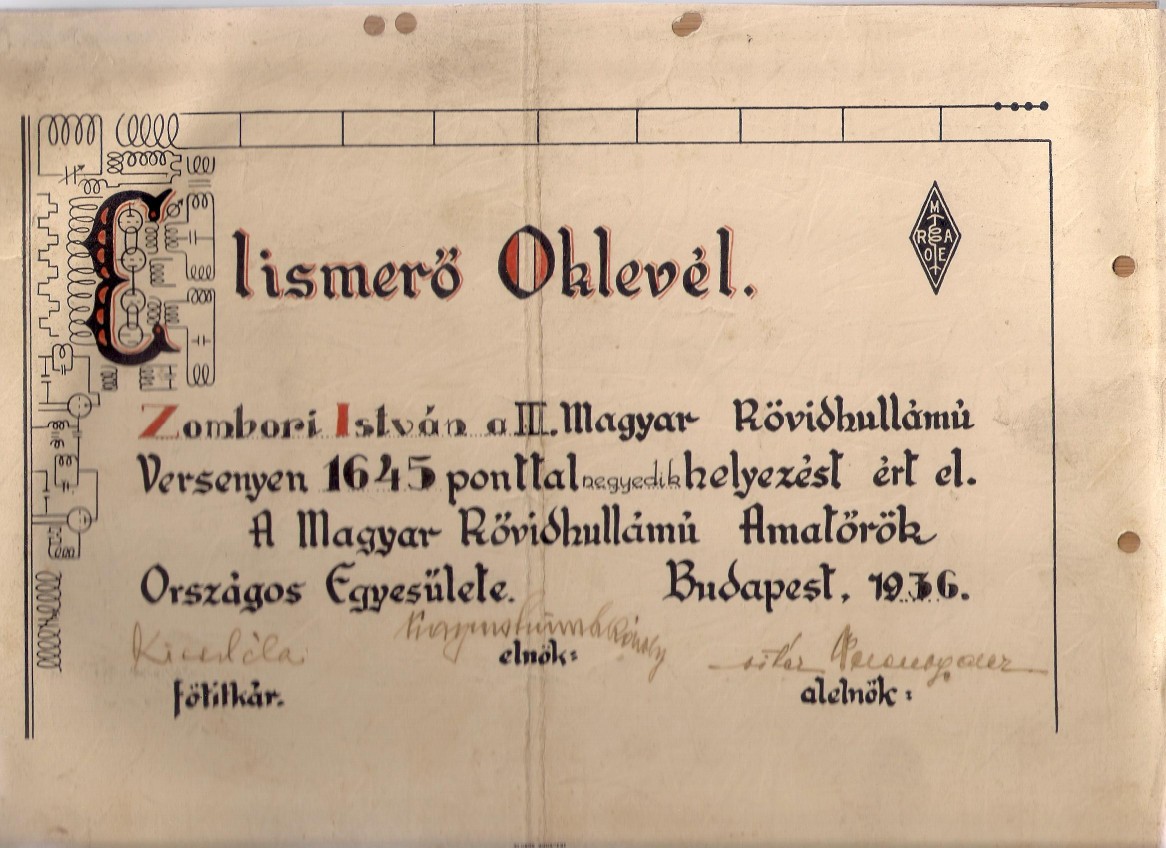 Elismerő Oklevél.
M
T
R G A
O E
T
Zombori István a III. Magyar Rövidhullámú
Versenyen 1645 ponttal negyedik helyezést ért el.
A Magyar Rövidhullámú Amatőrök
Országos Egyesülete. Budapest, 1936.
elnök:
főtitkár.
alelnök: